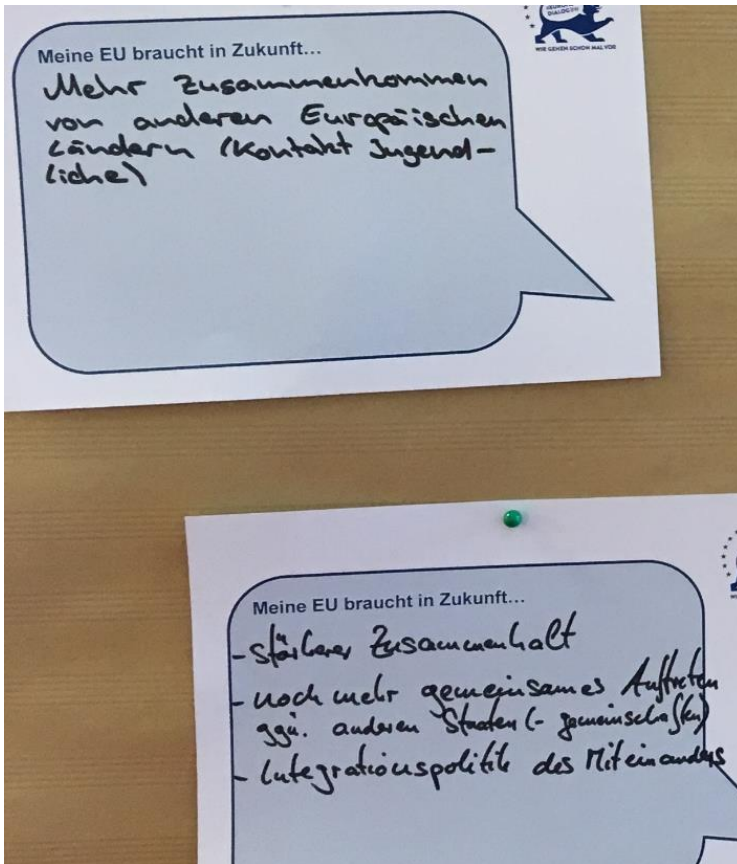 DIALOG EU
WIR GEHEN SCHON MAL VOR
Meine EU braucht in Zukunft...
Mehr Zusammenkommen
von anderen Europäischen
Ländern (Kontakt Jugend-
liche)
Meine EU braucht in Zukunft...
- stärkerer Zusammenhalt
- noch mehr gemeinsames Auftreten
ggü. anderen Staaten (- gemeinschaften)
- Integrationspolitik des Miteinanders